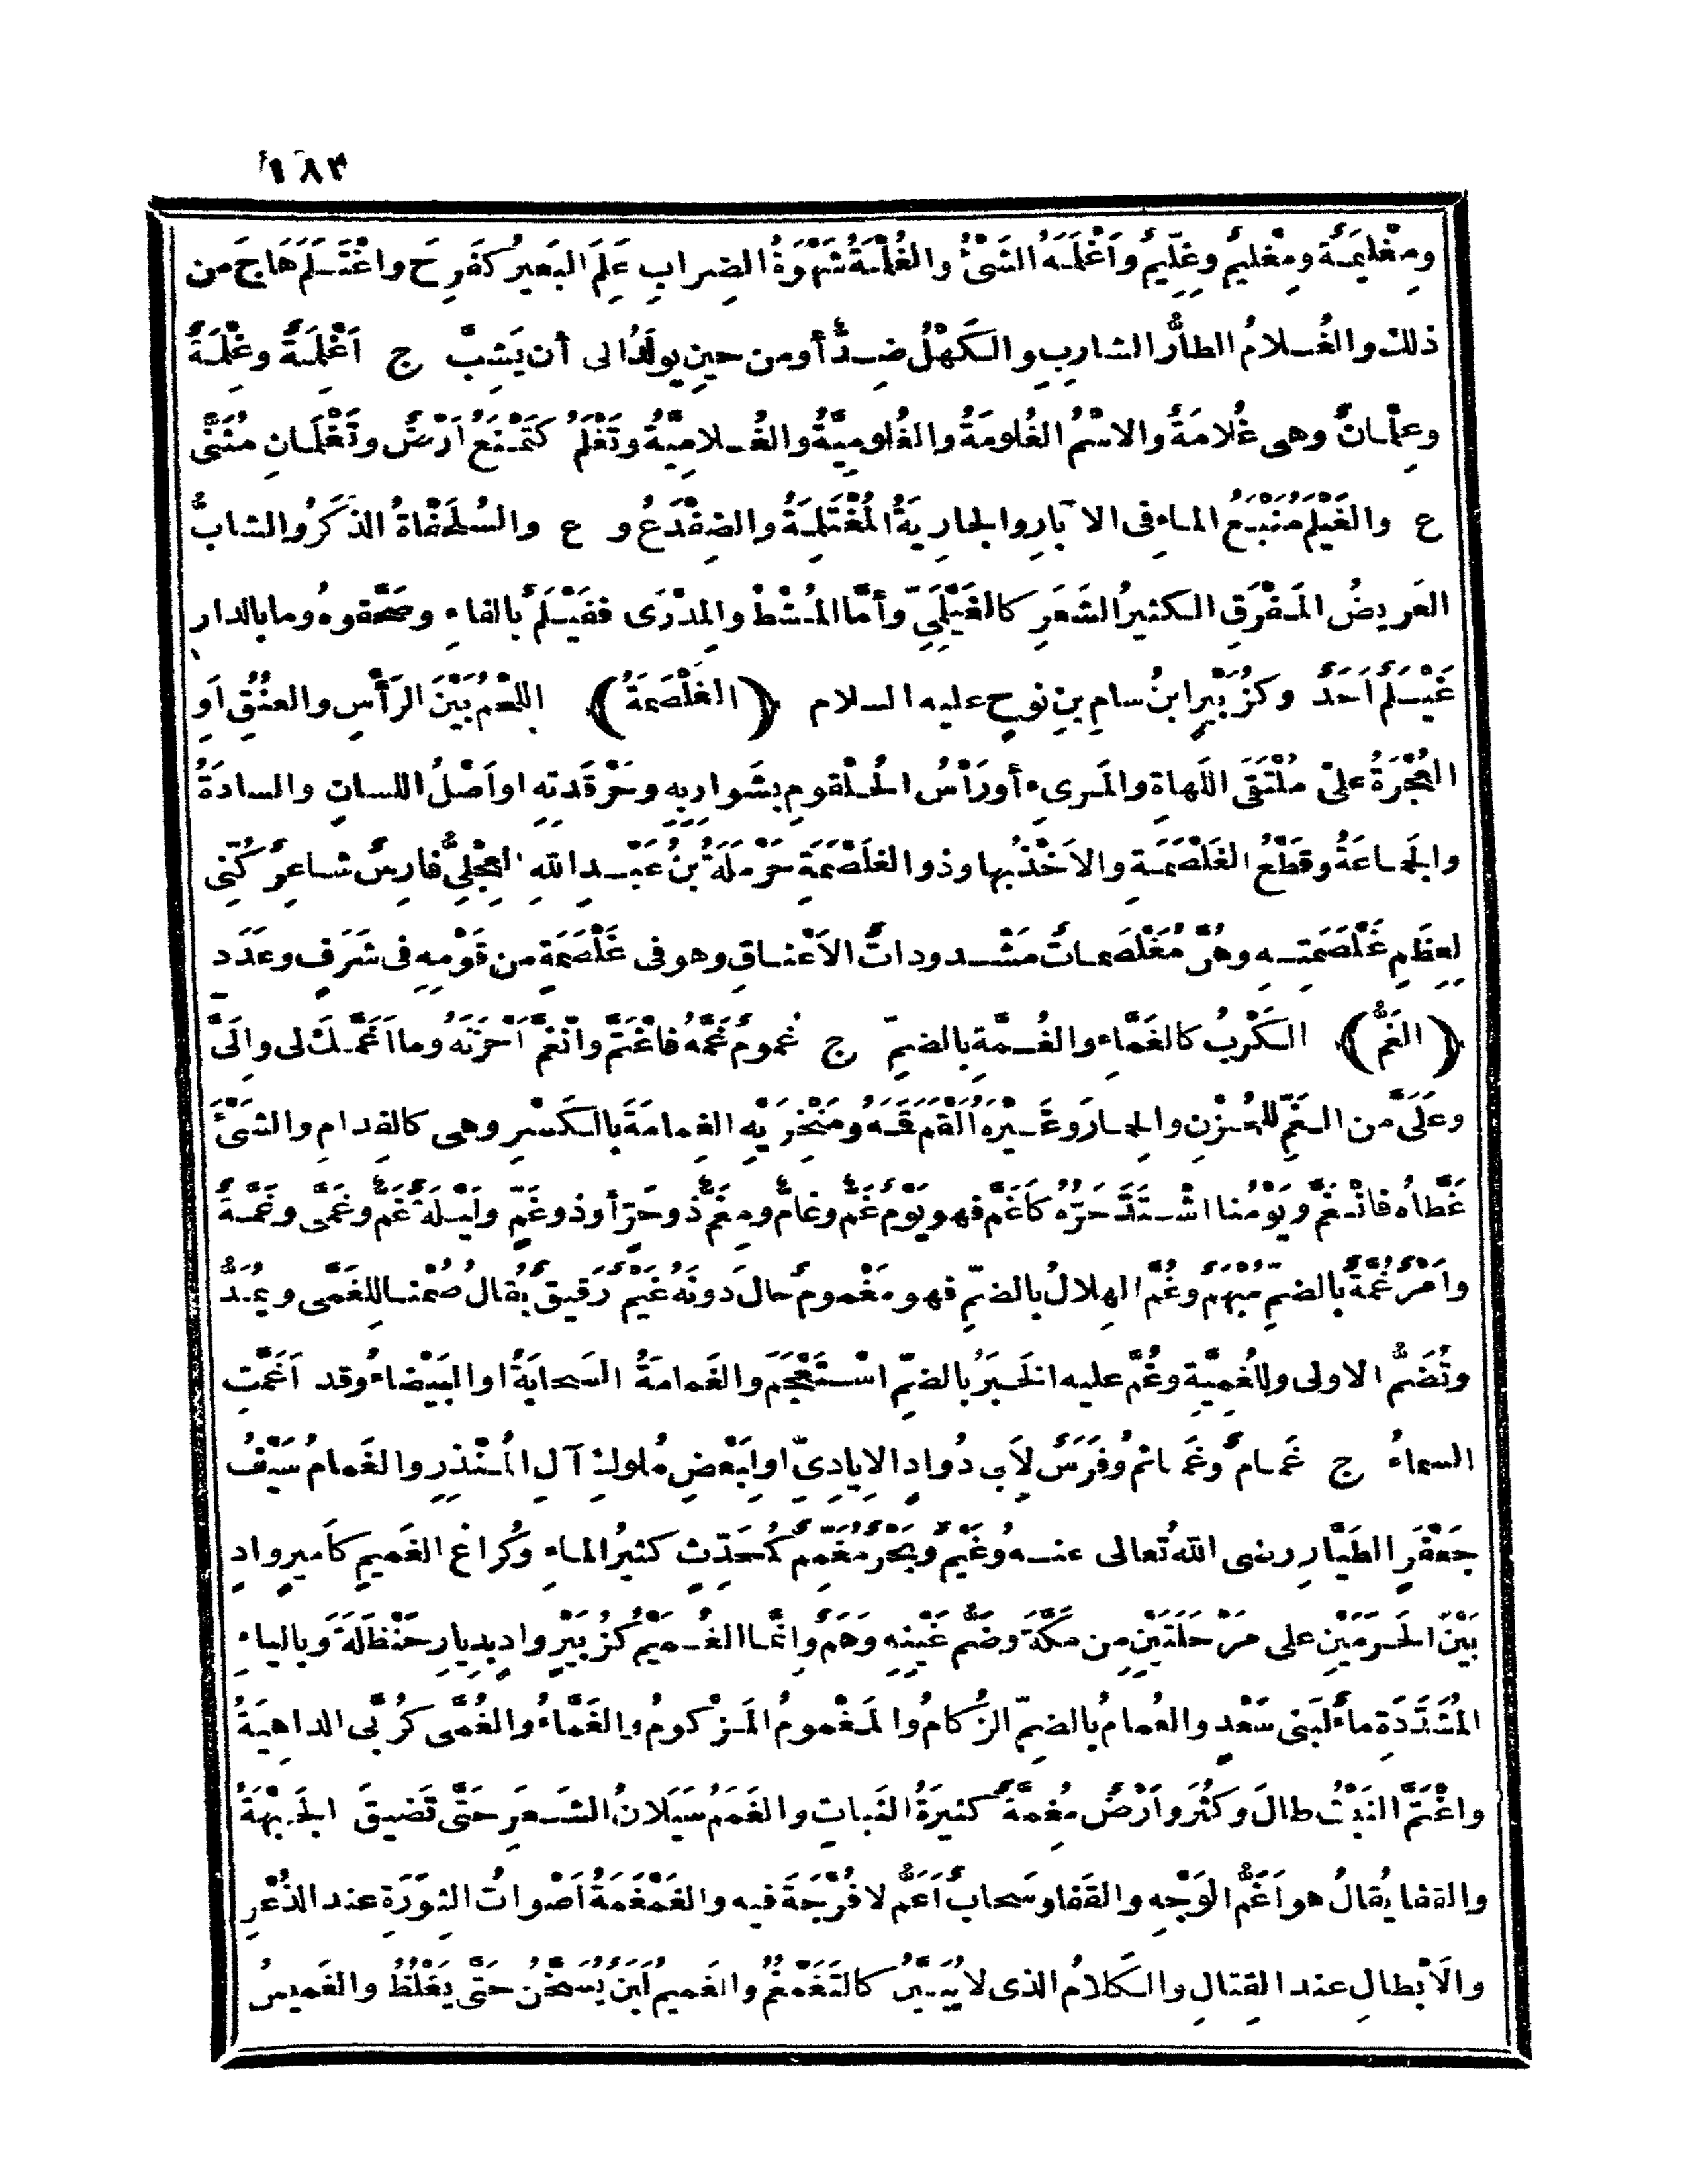 ١٨٣
ومِغْلِيمَةٌ ومِغْليمٌ وغِلِّيمٌ وأَغْلَمَهُ الشَّىْءُ والغُلْمَةُ شَهْوَةُ الضِرابِ غَلِمَ البَعيرُ كفَرِحَ واغْتَلَمَ هَاجَ من
ذلك والغُلامُ الطارُّ الشارِبِ والكَهْلُ ضِدٌّ أو من حينِ يولَدُ الى أن يَشِبَّ ج أَغْلِمَةٌ وغِلْمَةٌ
وغِلْمانٌ وهى غُلامَةٌ والاسْمُ الغُلومَةُ والغُلومِيَّةُ والغُلامِيَّةُ وتَغْلَمُ كتَمْنَعُ أَرْضٌ وتَغْلَمَانِ مُثَنًّى
ع والغَيْلَمُ مَنْبَعُ الماءِ فى الآبارِ والجارِيَةُ المُغْتَلِمَةُ والضِفْدَعُ و ع والسُلَحْفاةُ الذَكَرُ والشابُّ
العَريضُ المَفْرَقِ الكثيرُ الشَعَرِ كالغَيْلَمِىِّ وأمَّا المُشْطُ والمِدْرَى ففَيْلَمٌ بالفاءِ وصَحَّفوهُ وما بالدارِ
غَيْلَمٌ أَحَدٌ وكزُبَيْرٍ ابنُ سامِ بنِ نوحٍ عليه السلام ﴿الغَلْصَمَةُ﴾ اللحْمُ بَيْنَ الرَأْسِ والعنُقِ أوِ
العُجْرَةُ على مُلْتَقَى اللَهاةِ والمَرىءِ أو رَأْسُ الحُلْقومِ بشَوارِبِهِ وحَرْقَدَتِهِ او أَصْلُ اللسانِ والسادَةُ
والجَماعَةُ وقَطْعُ الغَلْصَمَةِ والأَخْذُ بها وذو الغَلْصَمَةِ حَرْمَلَةُ بنُ عَبْدِ اللهِ العِجْلِىُّ فارِسٌ شاعِرٌ كُنِّىَ
لِعِظَمِ غَلْصَمَتِهِ وهُنَّ مُغَلْصَماتٌ مَشْدوداتُ الأَعْناقِ وهو فى غَلْصَمَةٍ من قَوْمِهِ فى شَرَفٍ وعَدَدٍ
﴿الغَمُّ﴾ الكَرْبُ كالغَمَّاءِ والغُمَّةِ بالضمِّ ج غُمومٌ غَمَّهُ فاغْتَمَّ وانْغَمَّ أَحْزَنَهُ وما أَغَمَّكَ لى والَىَّ
وعَلَىَّ من الغَمِّ للحُزْنِ والحِمارَ وغَيْرَهُ أَلْقَمَ فَمَهُ ومَنْخِرَيْهِ الغِمامَةَ بالكَسْرِ وهى كالفِدامِ والشَىْءَ
غَطَّاهُ فانْغَمَّ ويَوْمُنا اشْتَدَّ حَرُّهُ كأَغَمَّ فهو يَوْمٌ غَمٌّ وغامٌّ ومِغَمٌّ ذو حَرٍّ أو ذو غَمٍّ ولَيْلَةٌ غَمٌّ وغَمَّى وغَمَّةٌ
وأَمْرٌ غُمَّةٌ بالضمِّ مُبْهَمٌ وغُمَّ الهِلالُ بالضمِّ فهو مَغْمومٌ حالَ دونَهُ غَيْمٌ رَقيقٌ يُقالُ صُمْنا لِلغَمَّى ويُمَدُّ
وتُضَمُّ الاولى وللغُمِيَّةِ وغُمَّ عليه الخَبَرُ بالضمِّ اسْتَعْجَمَ والغَمامَةُ السَحابَةُ او البَيْضاءُ وقد أَغَمَّتِ
السماءُ ج غَمامٌ وغَمائمُ وفَرَسٌ لأَبى دُوادٍ الإِيادِىِّ او لِبَعْضِ مُلوكِ آلِ المُنْذِرِ والغَمامُ سَيْفُ
جَعْفَرٍ الطَيَّارِ رضى اللهُ تعالى عنه وغَيْمٌ وبَحْرٌ مُغَمِّمٌ كمُحَدِّثٍ كثيرُ الماءِ وكُراعُ الغَميمِ كأَميرٍ وادٍ
بَيْنَ الحَرَمَيْنِ على مَرْحَلَتَيْنِ من مَكَّةَ وضَمُّ غَيْنِهِ وَهَمٌ وإنَّما الغُمَيْمُ كزُبَيْرٍ وادٍ بدِيارِ حَنْظَلَةَ وبالياءِ
المُشَدَّدَةِ ماءٌ لبنى سَعْدٍ والغُمامُ بالضمِّ الزُكامُ والمَغْمومُ المَزْكومُ والغَمَّاءُ والغُمَّى كرُبَّى الداهِيَةُ
واغْتَمَّ النَبْتُ طالَ وكَثُرَ وأَرْضٌ مُغِمَّةٌ كثيرَةُ النَباتِ والغَمَمُ سَيَلانُ الشَعرِ حَتَّى تَضيقَ الجَبْهَةُ
والقفا يُقالُ هو أَغَمُّ الوَجْهِ والقَفا وسَحابٌ أَغَمُّ لا فُرْجَةَ فيه والغَمْغَمَةُ أَصْواتُ الثِوَرَةِ عند الذُعْرِ
والأَبْطالِ عند القِتالِ والكَلامُ الذى لا يُبَيَّنُ كالتَغَمْغُمِ والغَميمُ لَبَنٌ يُسَخَّنُ حَتَّى يَغْلُظَ والغَميسُ